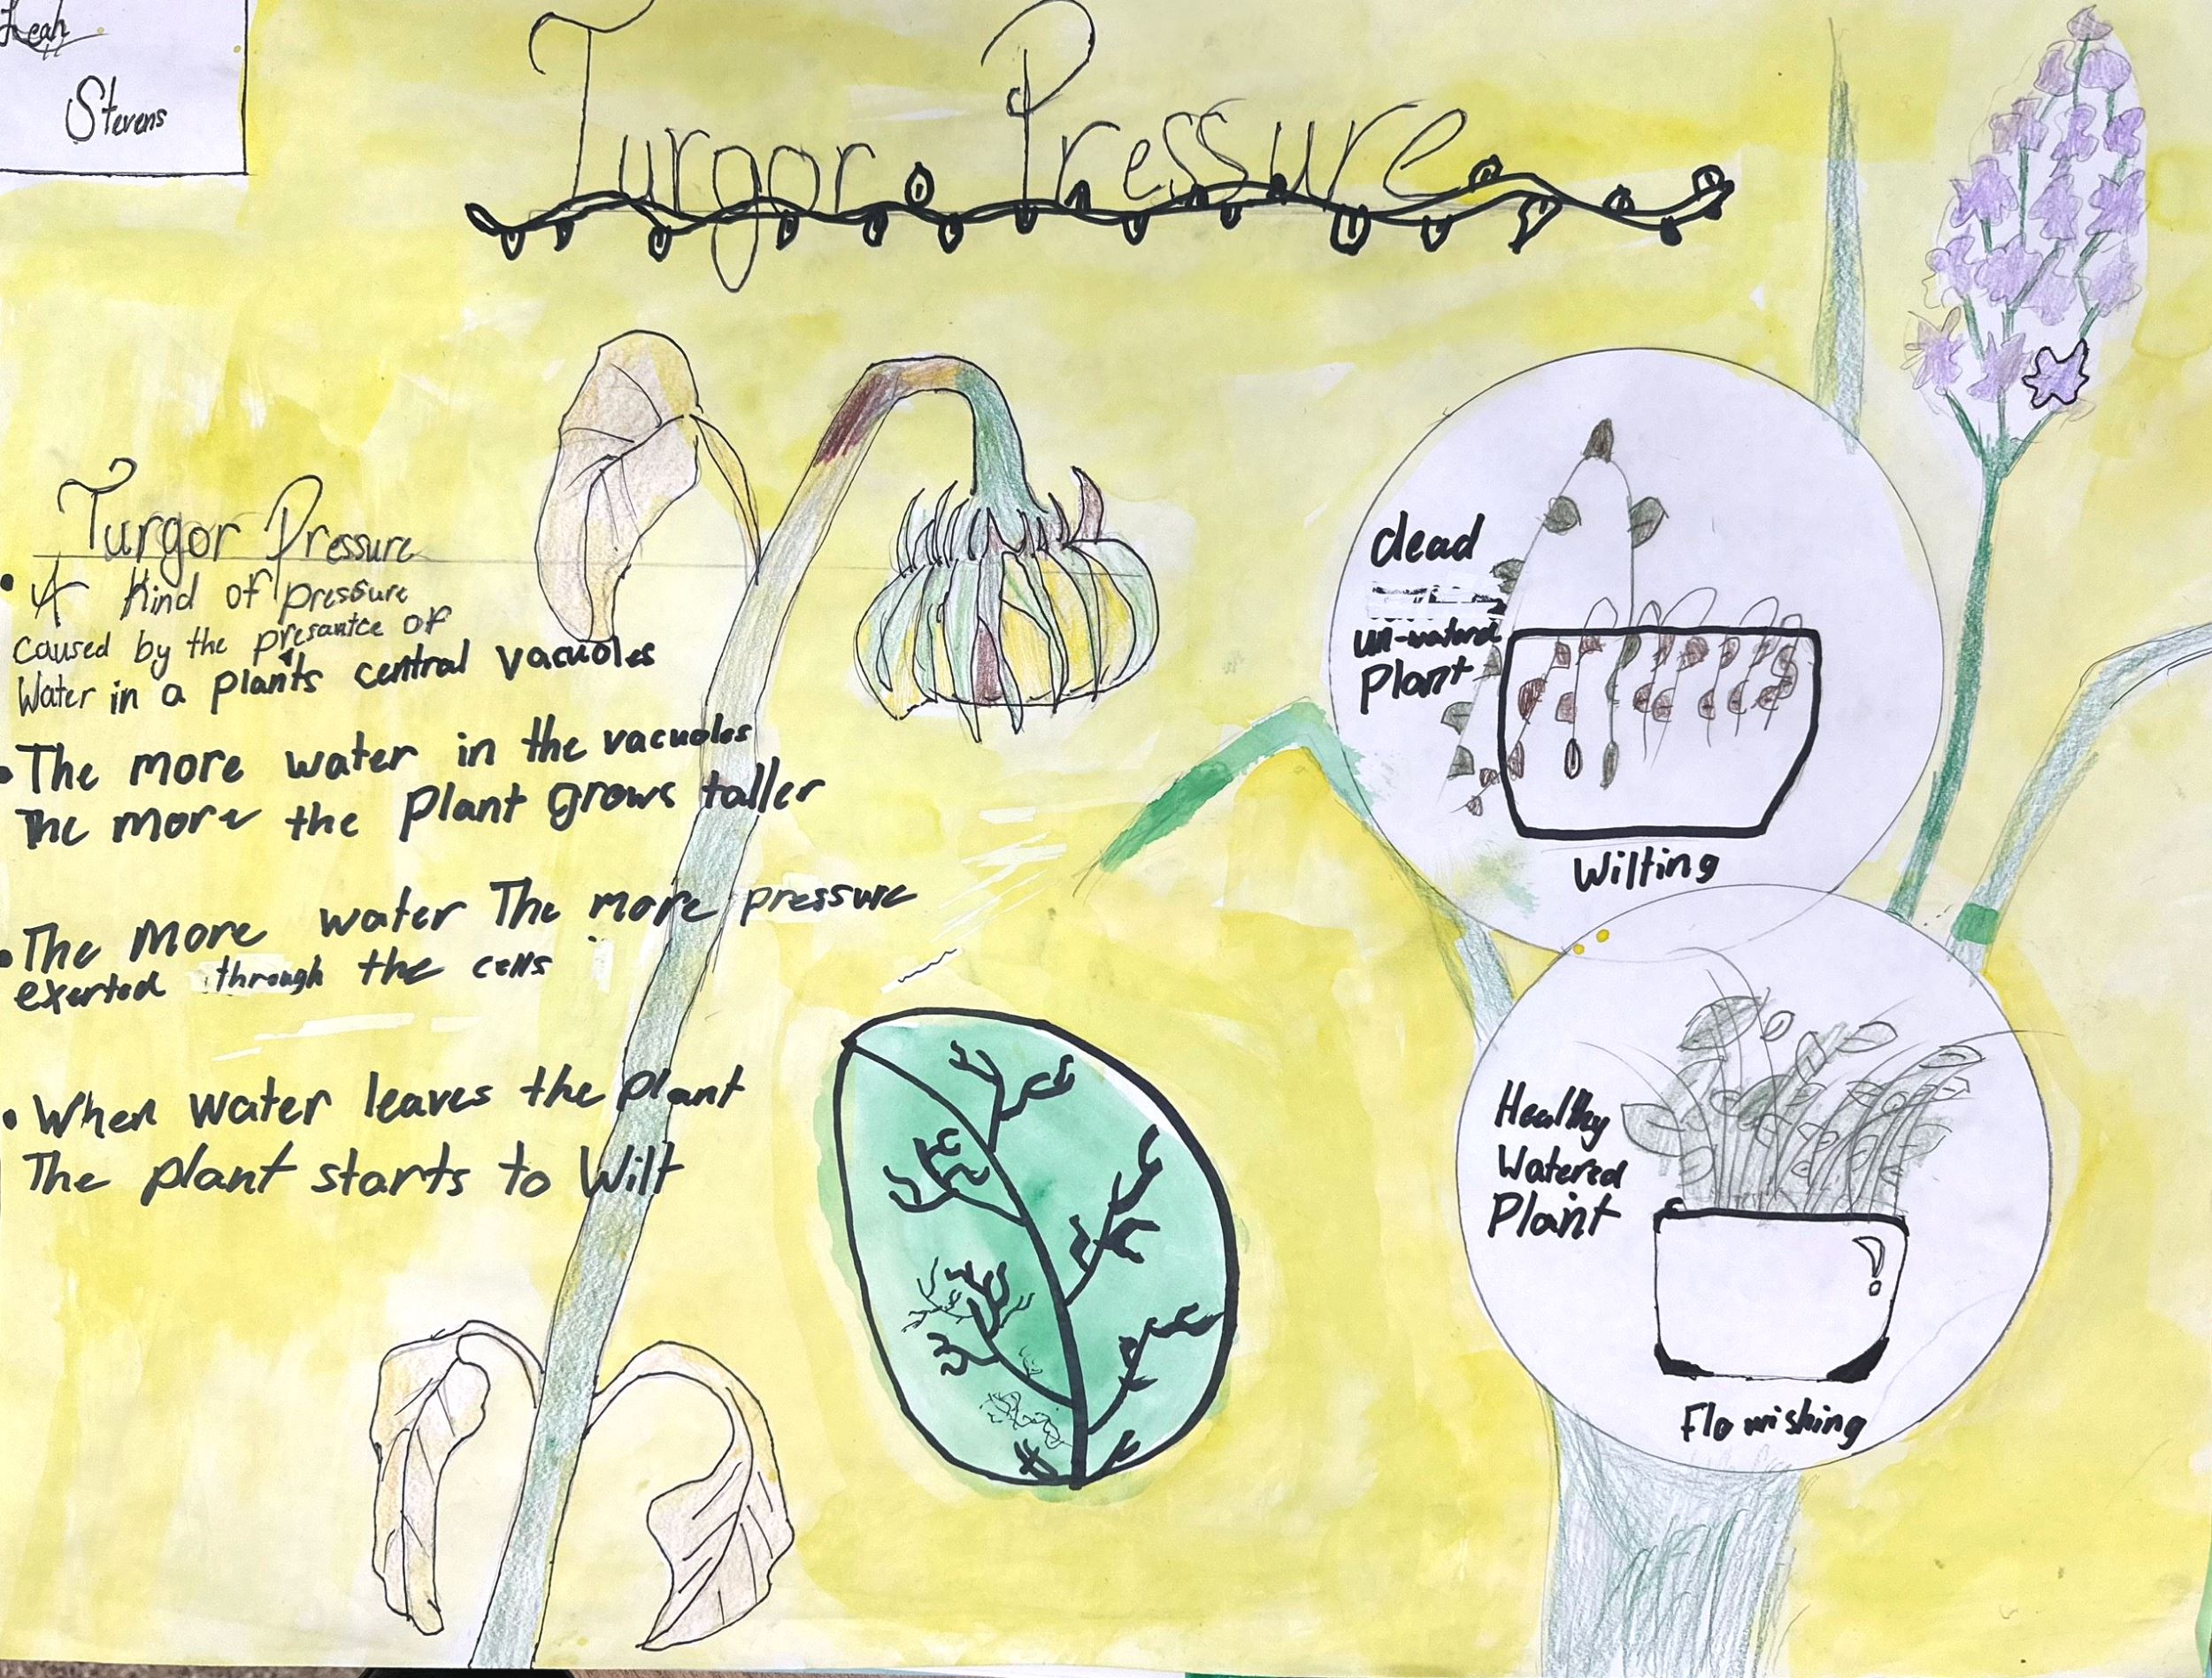 Leah
Stevens
Turgor Pressure
Turgor Pressure
• A Kind of pressure
caused by the presantce of
Water in a plants central vacuoles
• The more water in the vacuoles
The more the plant grows taller
• The more water The more pressure
exerted through the cells
• When water leaves the plant
The plant starts to Wilt
dead
un-watered
plant
Wilting
Healthy
Watered
Plant
Flowishing